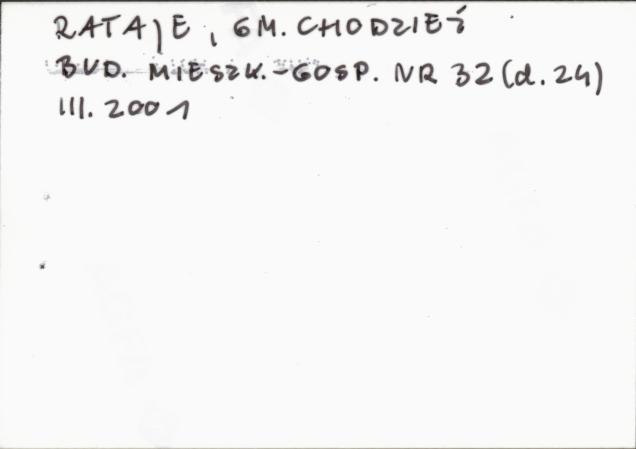 RATAJE, GM. CHODZIEŻ
BUD. MIESZK.-GOSP. NR 32 (d. 24)
III. 2001